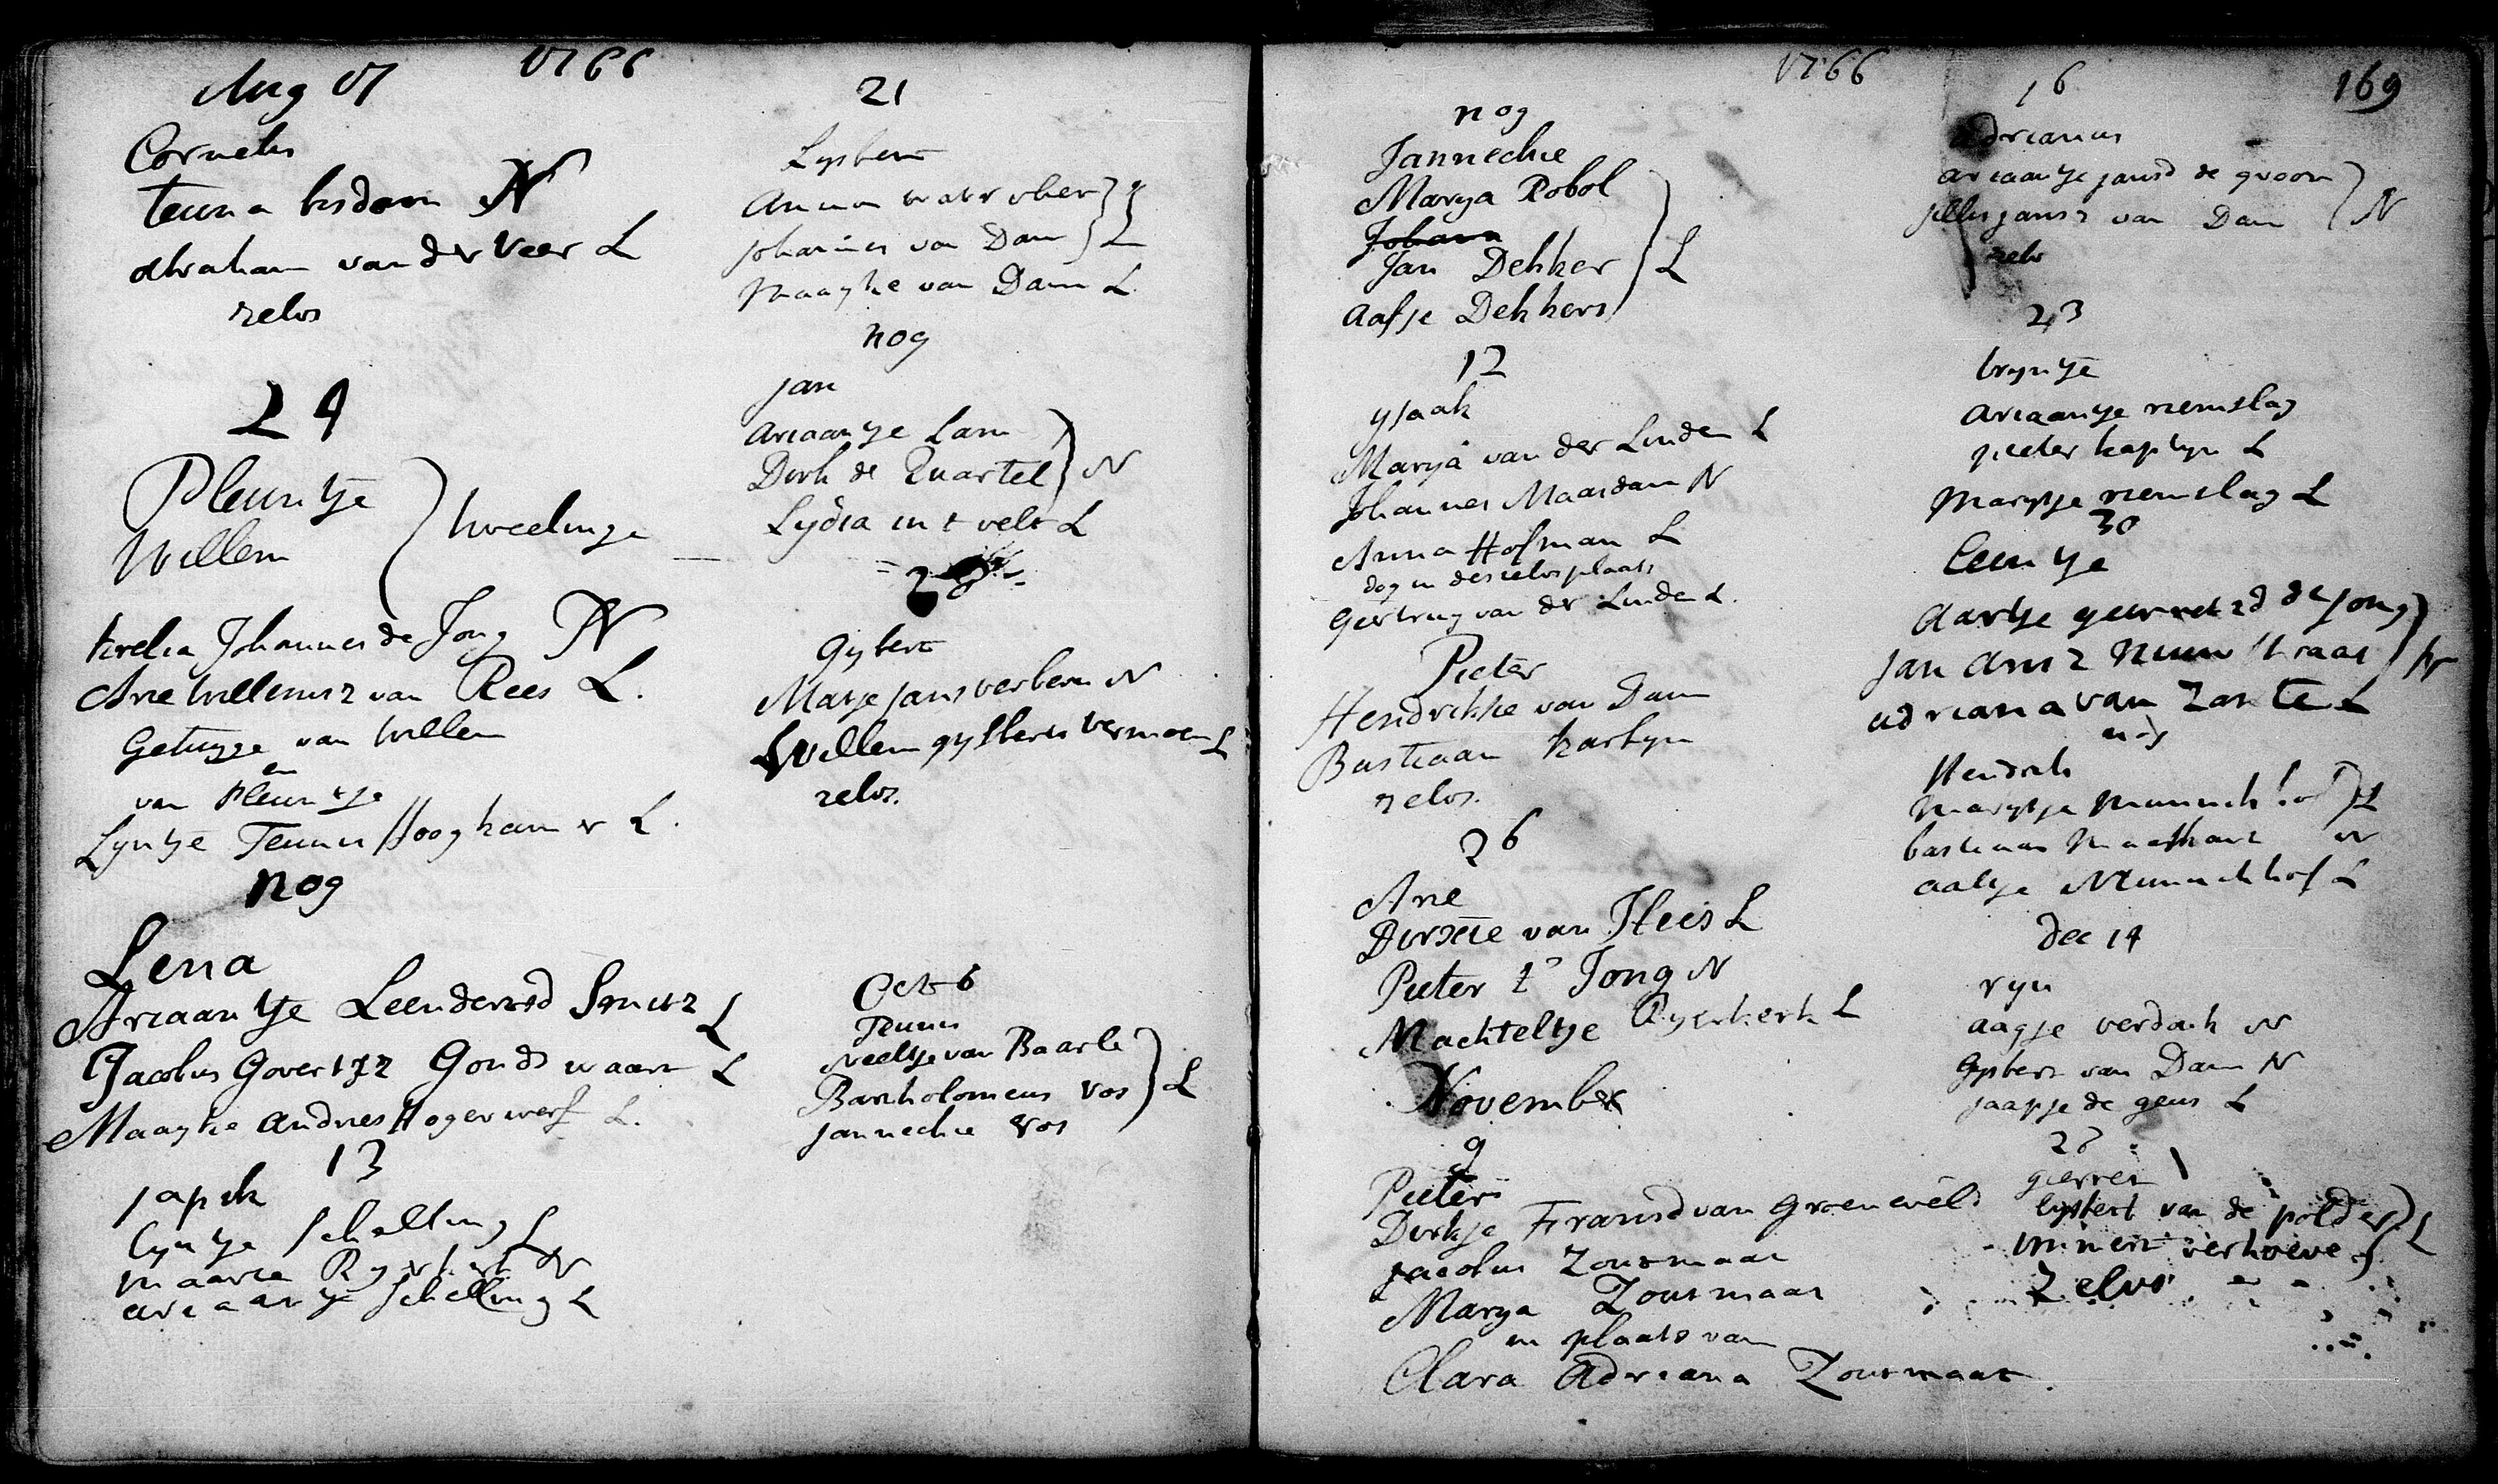 1766
Aug 17
Cornelis
Teuna bisdom N
Abraham van der Veer L
zelvs
24
Pleuntje
Willem
tweelinge
Johannes de Jong N
Arie Willemsz van Rees L.
Getuyge van Willem
en
van Pleuntje
Lyntje Teunis Hooghamer L.
nog
Lena
Ariaantje Leendertsd Smits L
Jacobus Govertsz Goudswaart L
Maayke Andries Hogerwerf L.
13
japik
Lyntje Schelling L
maarten Ryerkerk N
ariaantje Schelling L
21
Lysbert
Anna
Johannes van Dam L
Maayke van Dam L
nog
jan
Ariaantje Lam
Dirk de Quartel N
Lydia in t velt L
Gysbert
Marje jans verbem N
Willem gysberts vermoen L
zelvs.
Oct 6
Teunis
Neeltje van Baarle
Bartholomeus Vos L
jannechie Vos
1766
169
nog
Jannechie
Marya Robol
Johann
Jan Dekker L
Aafje Dekkers
12
ysaak
Marya van der Linden L
Johannes Maasdam N
Anna Hofman L
dog in des zelvs plaats
Geertruy van der Linden L.
Pieter
Hendrikke van Dam
Bastiaan kaptyn
zelvs.
26
Arie
van Hees L
Pieter t Jong N
Machteltje Ryerkerk L
November
9
Pieter
Dirkje Fransd van Groenevelt
Jacobus Zoutmaat
Marya Zoutmaat
in plaats van
Clara Adriana Zoutmaat.
16
Adrianus
Ariaantje jansd de groom
jillis jansz van Dam N
zelvs
23
bryntje
Ariaantje riemslag
pieter kaptyn L
Marytje riemslag L
30
Leentje
Aartje gerretsd de jong
Jan Ariesz Nieuwstraat N
adriana van Zante L
nog
Hendrik
Marytje L
bastiaan N
aaltje Munnickhof L
dec 14
ryn
aagje verdonk N
Gysbert van Dam N
jaapje de geus L
28
gerret
Lysbert van de polder L
verhoeve
Zelvs